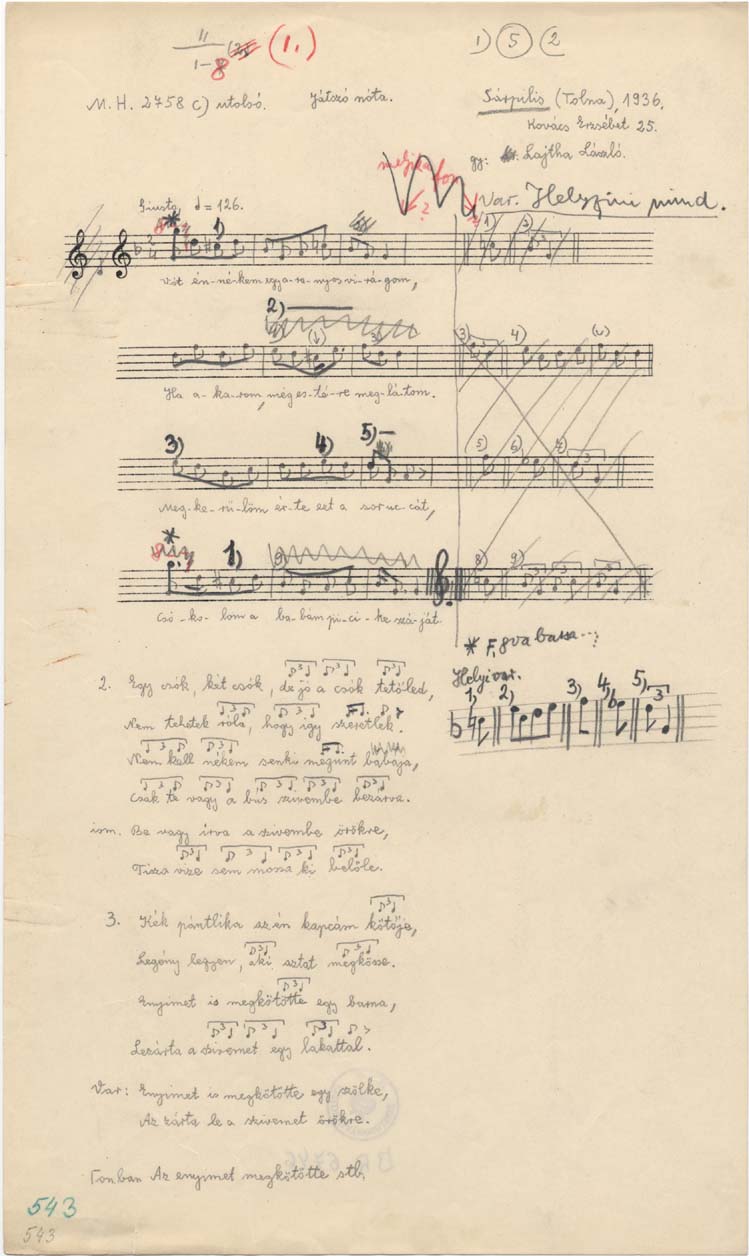 11
1-8
(1.)
1) 5 (2
M. H. 2758 c) utolsó. Játszó nóta. Sárpilis (Tolna), 1936.
Kovács Erzsébet 25.
gy: Lajtha László.
Var. Helyszíni mind.
Giusto ♩ = 126.
Vót én-né-kem egy a-ra-nyos vi-rá-gom,
Ha a-ka-rom, még es-té-re meg-lá-tom.
Meg-ke-rü-löm ér-te ezt a sor uc-cát,
Csó-ko-lom a ba-bám pi-ci-ke szá-ját.
* F, 8va bassa
Helyi var.
1) 2) 3) 4) 5)
2. Egy csók, két csók, de jó a csók tetőled,
Nem tehetek róla, hogy így szeretlek.
Nem kell nékem senki megunt babája,
Csak te vagy a bús szívembe bezárva.
ism. Be vagy írva a szívembe örökre,
Tisza vize sem mossa ki belőle.
3. Kék pántlika az én kapcám kötője,
Legény legyen, aki sztat megkösse.
Enyimet is megkötötte egy barna,
Lezárta a szivemet egy lakattal.
Var: Enyimet is megkötötte egy szőlke,
Az zárta le a szivemet örökre.
Fonban Az enyimet megkötötte stb.
543
543